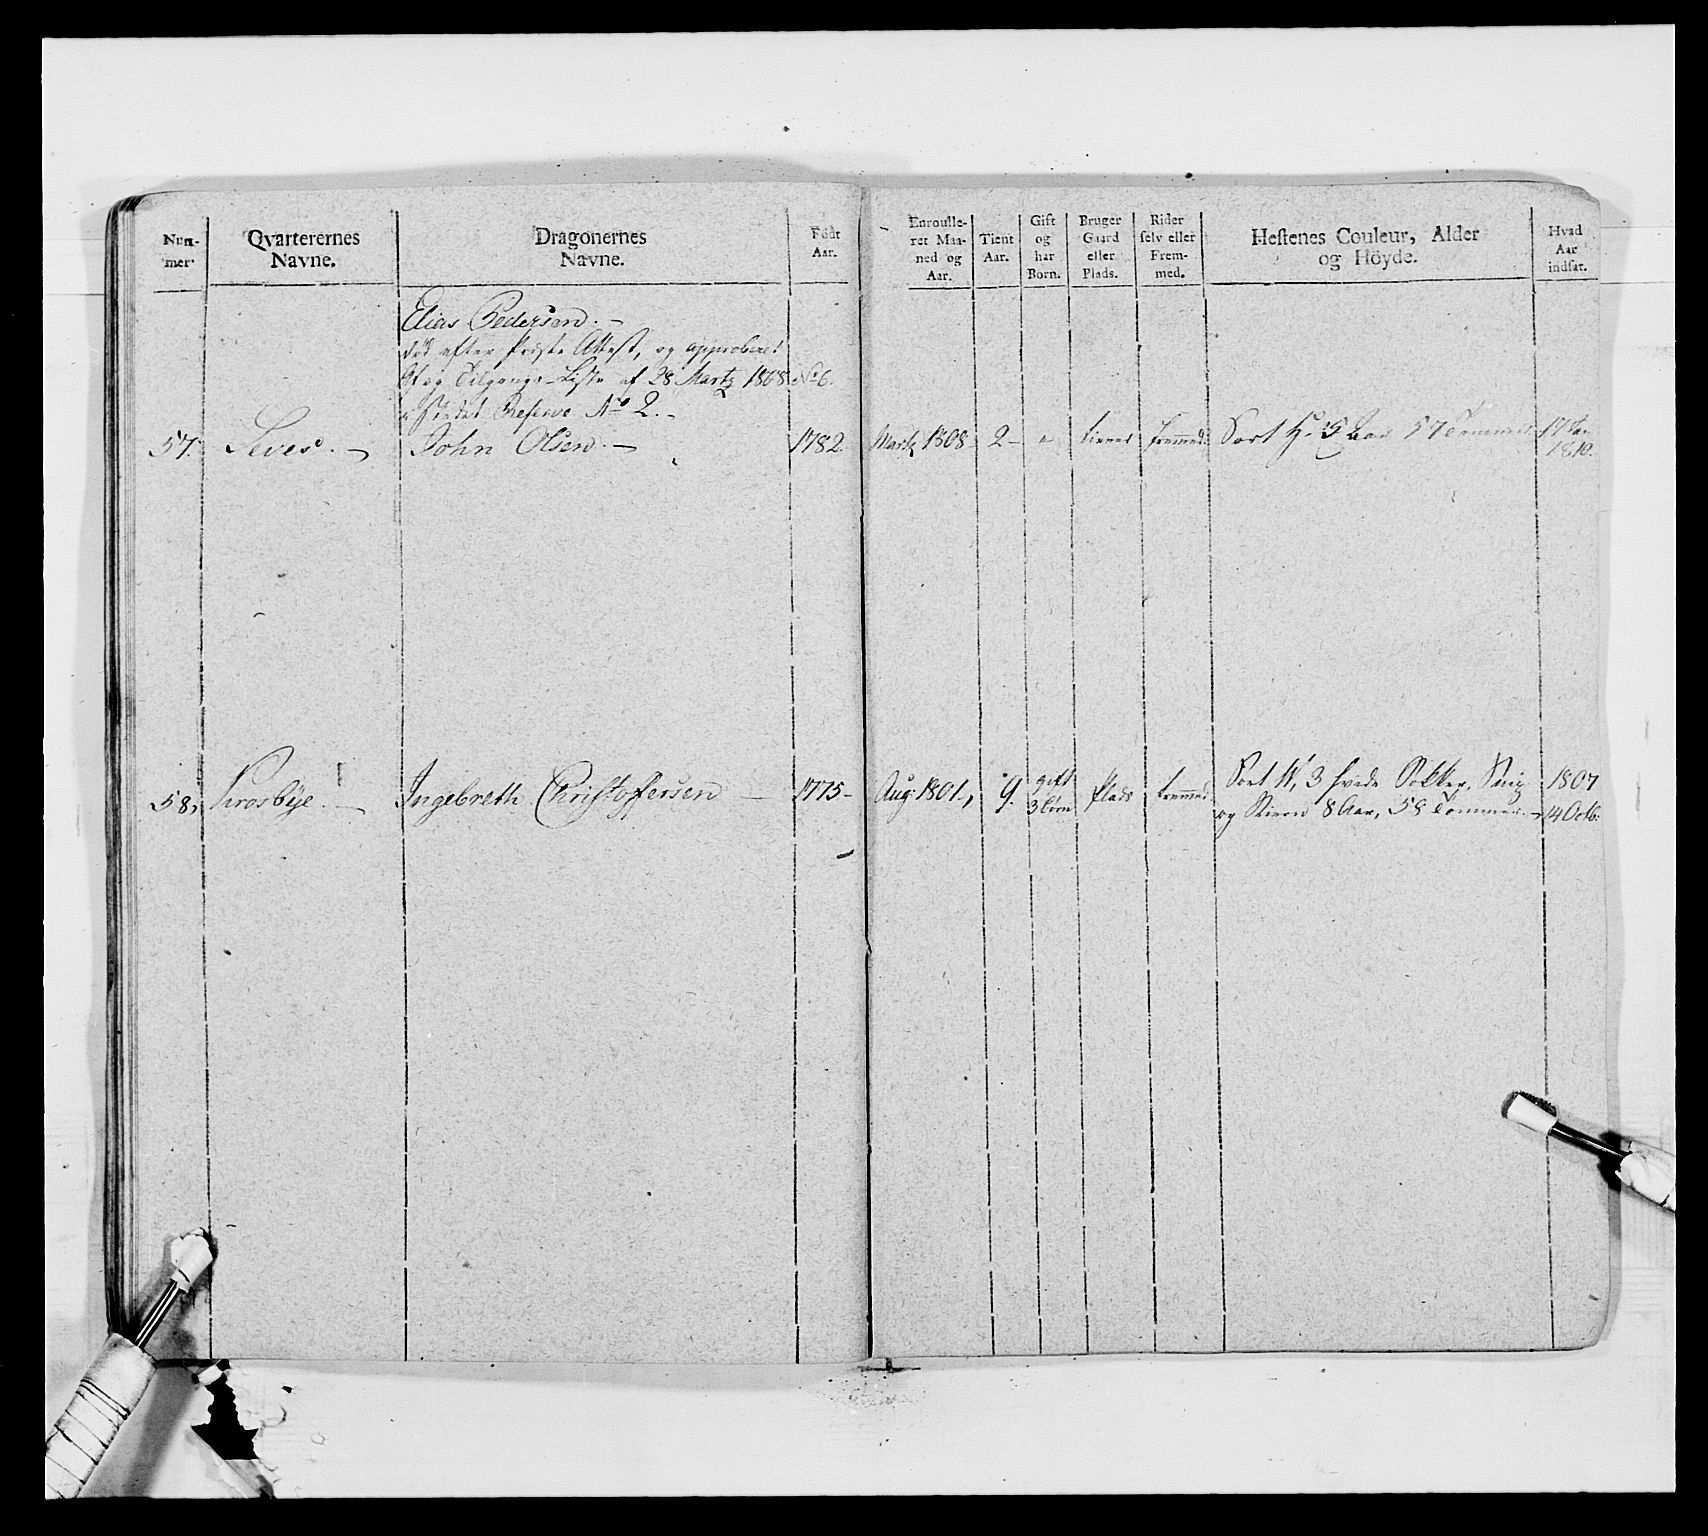 Num-
mer.
Qvarterernes
Navne.
Dragonernes
Navne.
Født
Aar.
Enroulle-
ret Maa-
ned og
Aar.
Tient
Aar.
Gift
og
har
Børn.
Bruger
Gaard
eller
Plads.
Rider
selv eller
Frem-
med.
Hestenes Couleur, Alder
og Höyde.
Hvad
Aar
indsat.
Elias Pedersen. -
død efter Præste Attest, og approberet
Af og Tilgangs-Liste af 28 Martz 1808 No 6.
Reserve No 2. -
57. John Olsen. - 1782. Martz 1808 2 - tiener fremmed Sort H. 5 Aar 57 Tommer 17 Jan
1810.
58, Krosbye. - Ingebreth Christoffersen - 1775 - Aug: 1801, 9. gift Plads fremmed Sort 3 hvide Sokker, Snip 1807
3 børn og Stiern 8 Aar, 58 Tommer. - 14 Octb: